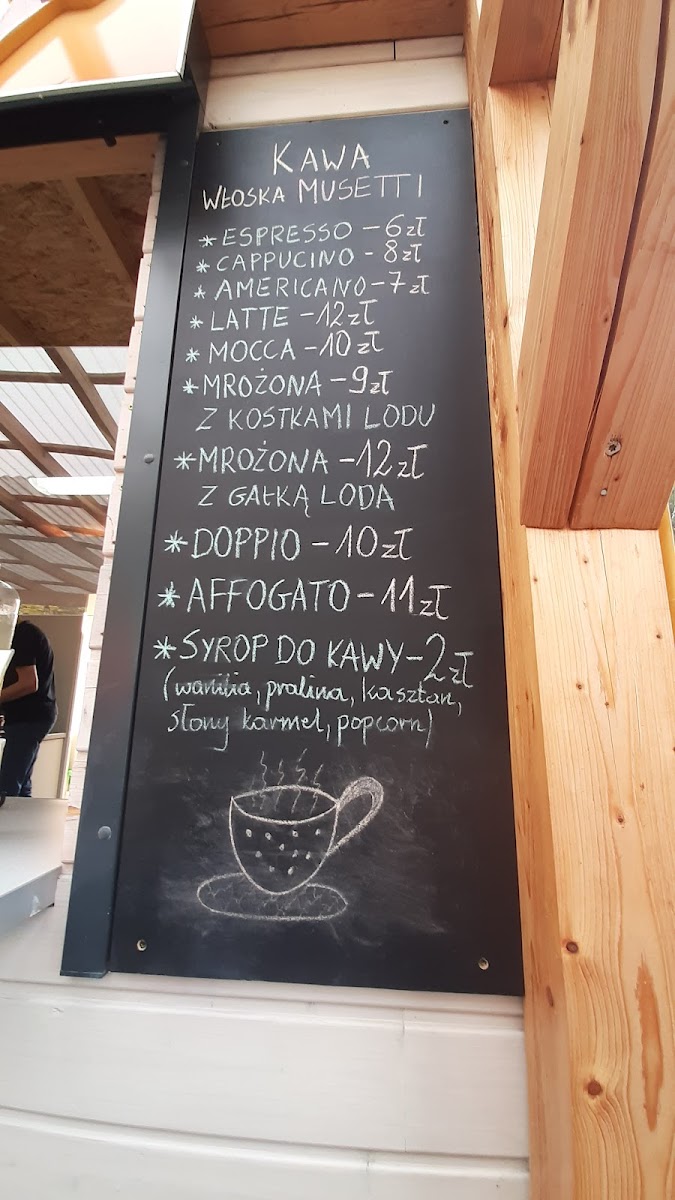 KAWA
WŁOSKA MUSETTI
* ESPRESSO - 6 zł
* CAPPUCINO - 8 zł
* AMERICANO - 7 zł
* LATTE - 12 zł
* MOCCA - 10 zł
* MROŻONA - 9 zł
Z KOSTKAMI LODU
* MROŻONA - 12 zł
Z GAŁKĄ LODA
* DOPPIO - 10 zł
* AFFOGATO - 11 zł
* SYROP DO KAWY - 2 zł
(wanilia, pralina, kasztan,
słony karmel, popcorn)